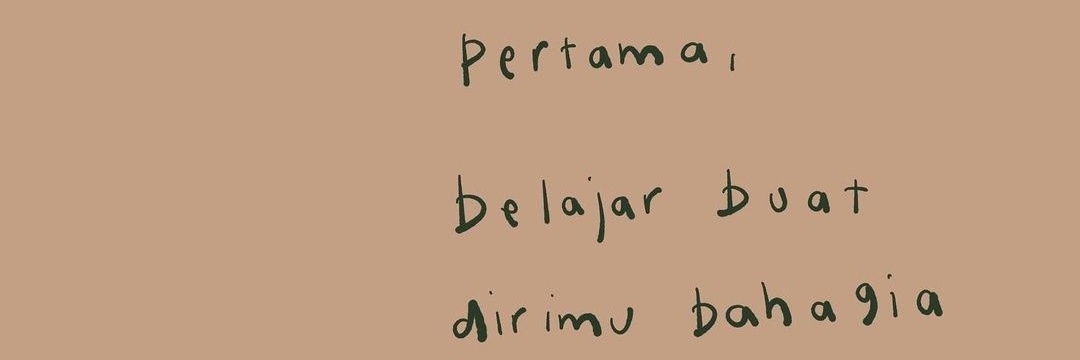 Pertama,
belajar buat
dirimu bahagia